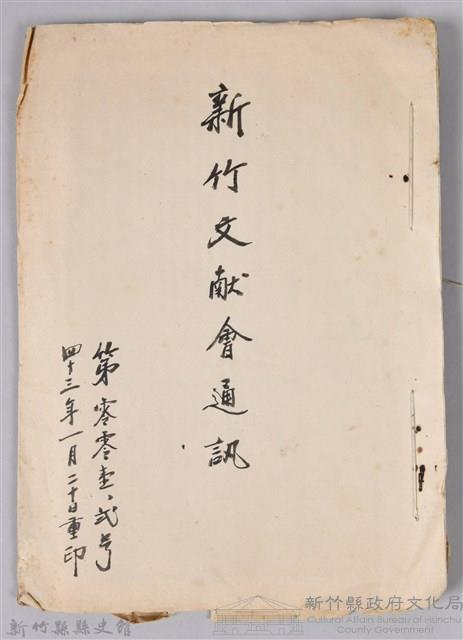 新竹文献會通訊
第零零壹、弍号
四十三年一月二十日重印
新竹縣縣史館
新竹縣政府文化局
Cultural Affairs Bureau of Hsinchu
County Government